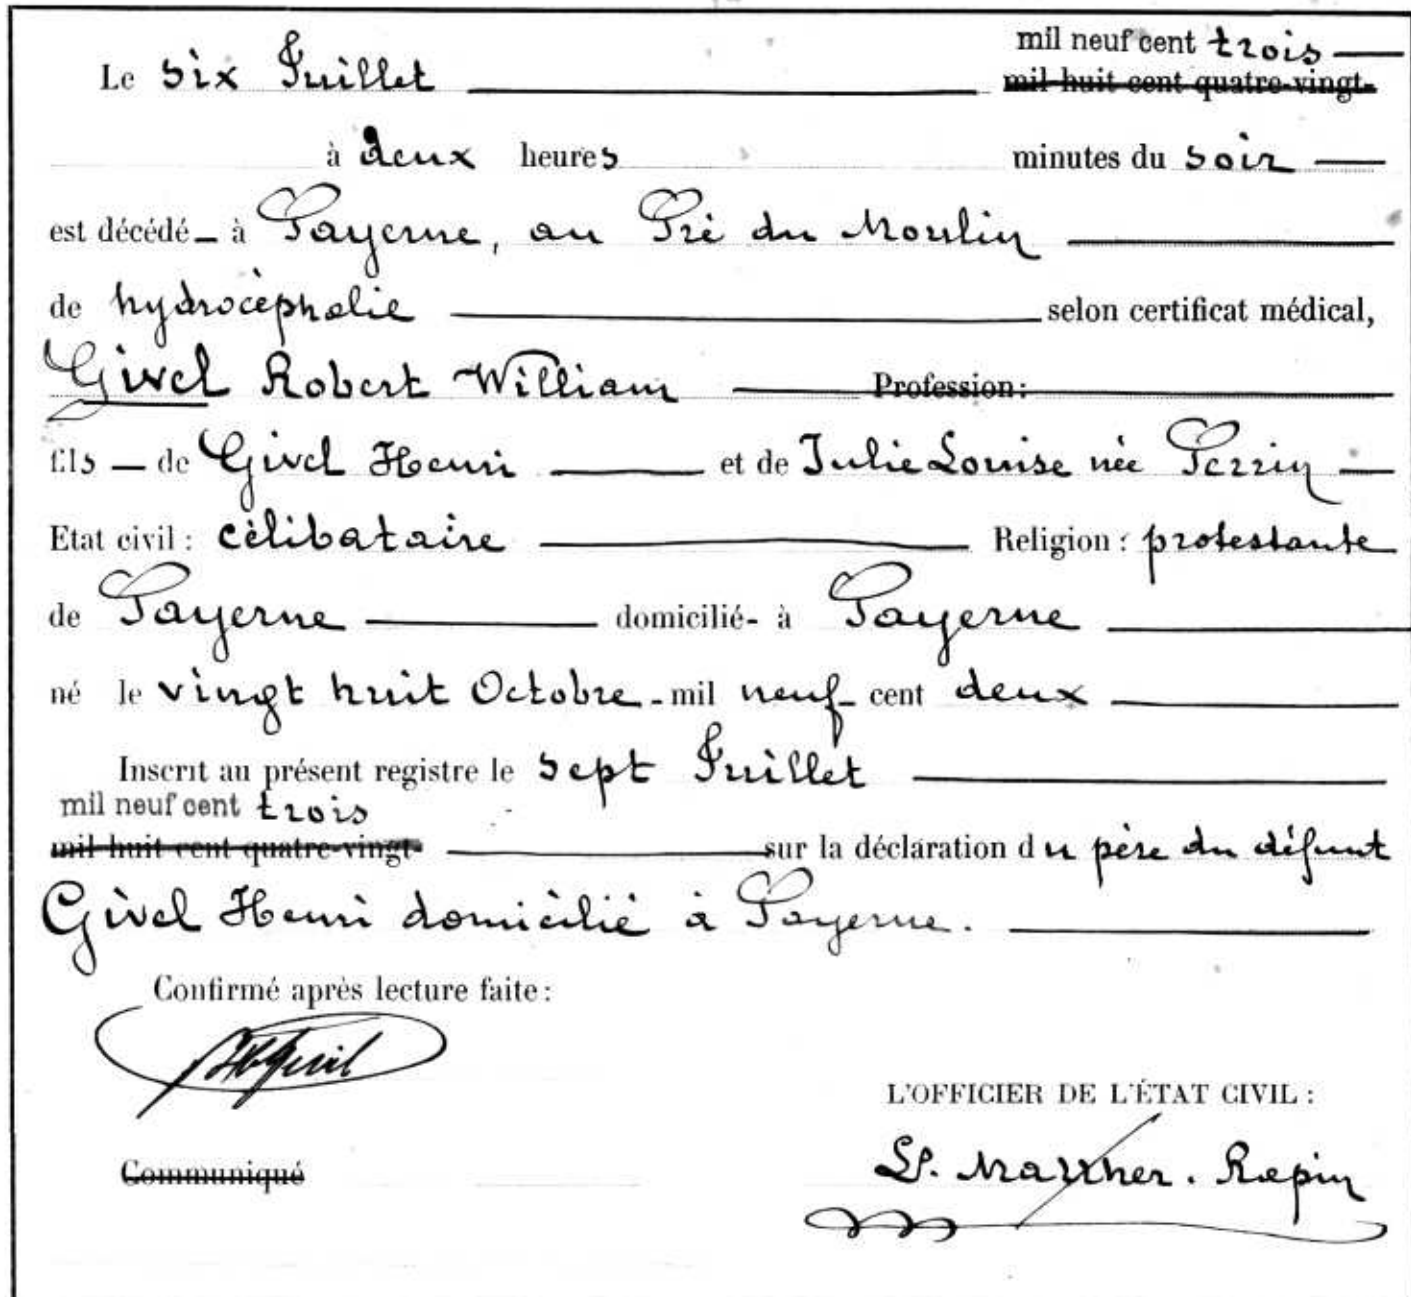 mil neuf cent trois
Le six Juillet mil huit cent quatre-vingt-
à deux heures minutes du soir
est décédé à Payerne, au Pré du Moulin
de hydrocéphalie selon certificat médical,
Givel Robert William Profession:
fils de Givel Henri et de Julie Louise née Perrin
Etat civil : célibataire Religion : protestante
de Payerne domicilié- à Payerne
né le vingt huit Octobre mil neuf cent deux
Inscrit au présent registre le sept Juillet
mil neuf cent trois
mil huit cent quatre-vingt- sur la déclaration du père du défunt
Givel Henri domicilié à Payerne.
Confirmé après lecture faite :
L'OFFICIER DE L'ÉTAT CIVIL :
Rapin
Communiqué